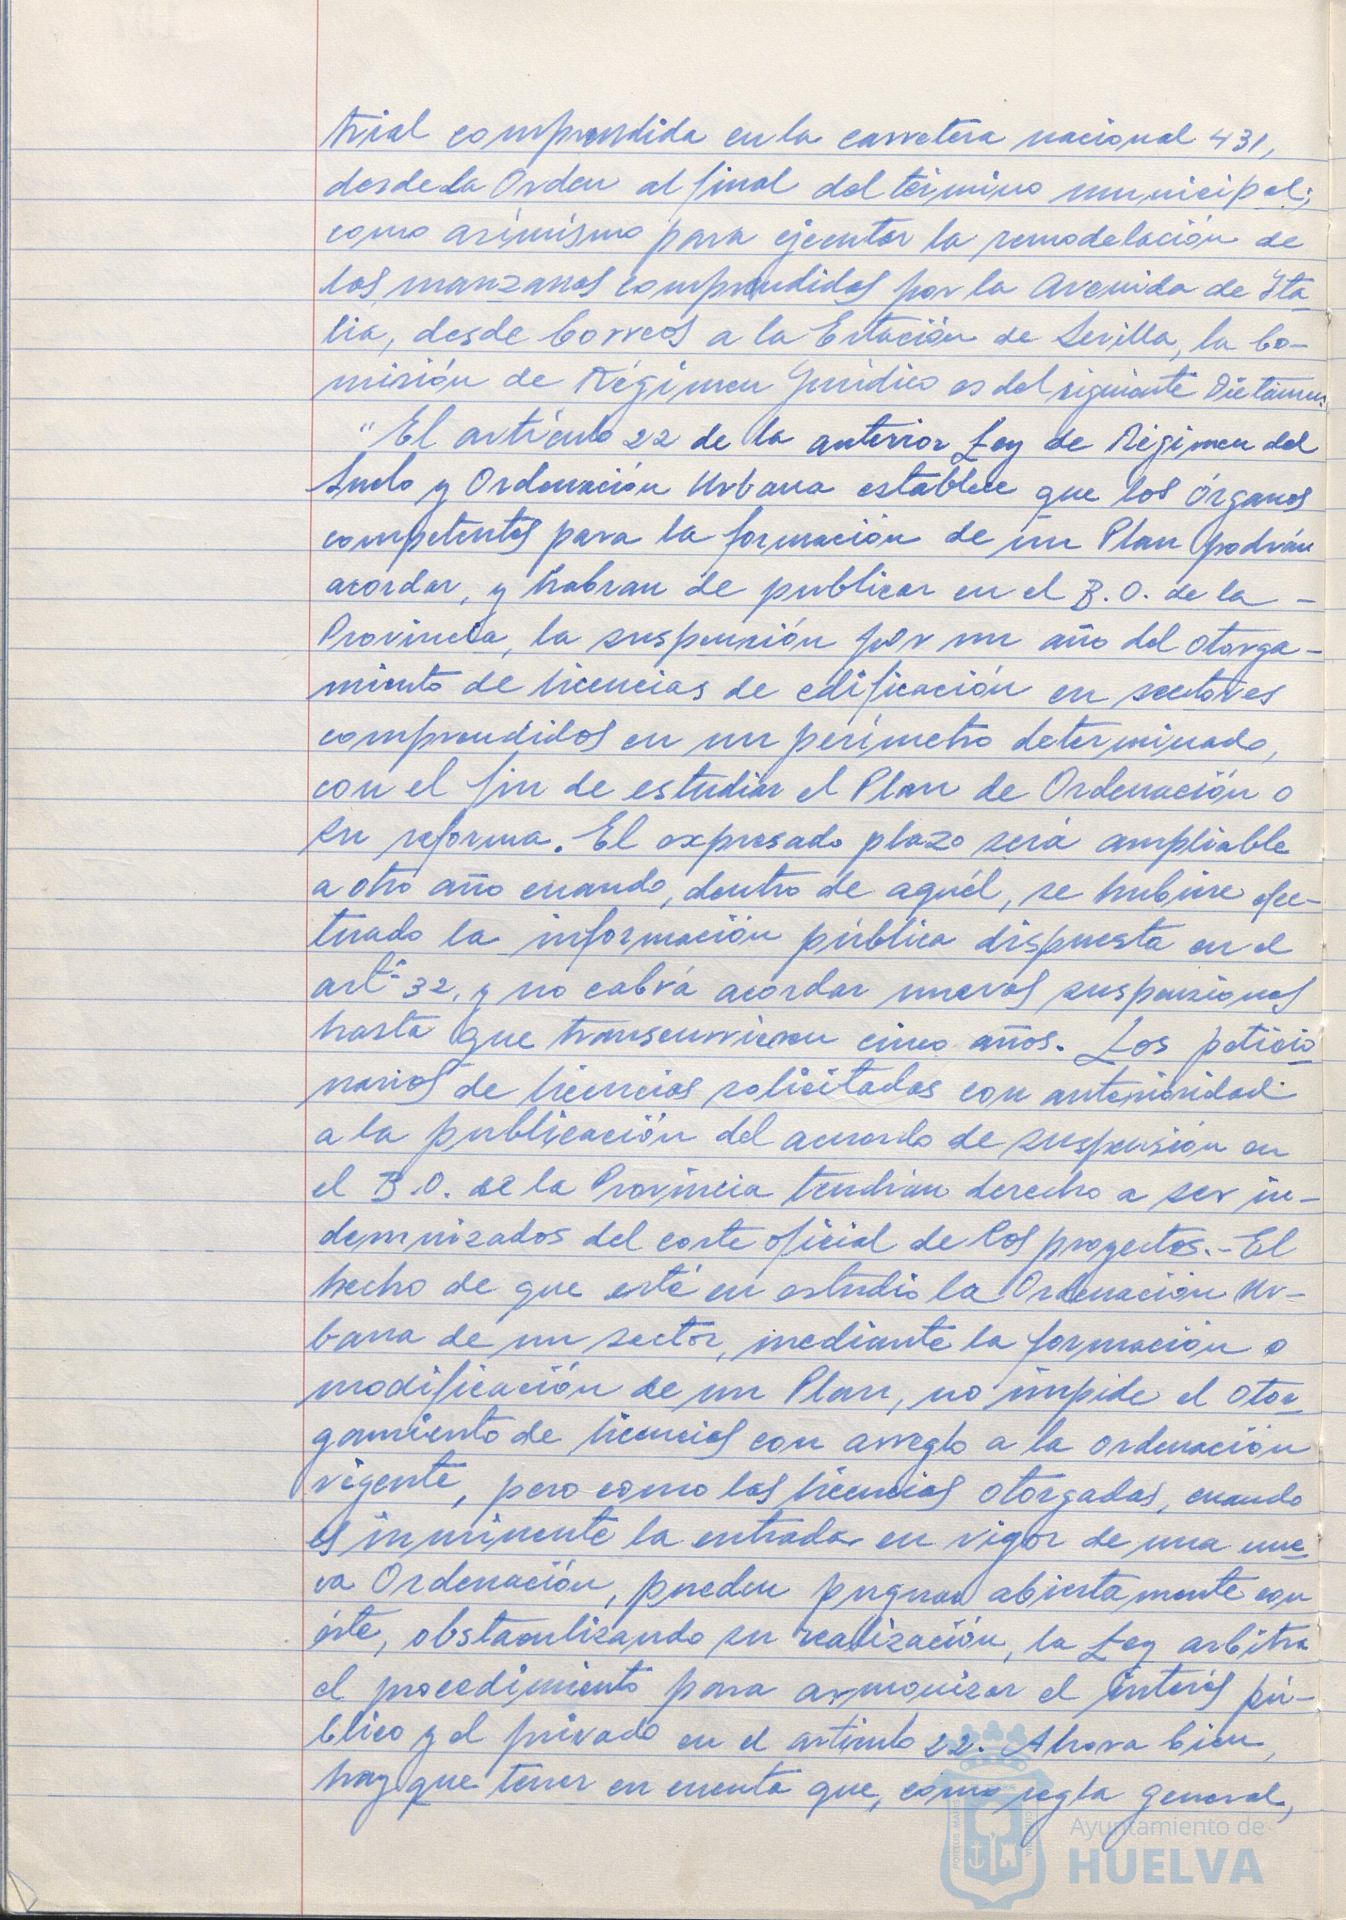 trial comprendida en la carretera nacional 431,
desde la Orden al final del término municipal;
como asímismo para ejecutar la remodelación de
las manzanas comprendidas por la Avenida de Ita
lia, desde Correos a la Estación de Sevilla, la Co-
misión de Régimen Jurídico es del siguiente Dictamen.
"El artículo 22 de la anterior Ley de Régimen del
Suelo y Ordenación Urbana establece que los órganos
competentes para la formación de un Plan podrán
acordar, y habran de publicar en el B.O. de la -
Provincia, la suspensión por un año del otorga-
miento de licencias de edificación en sectores
comprendidos en un perímetro determinado,
con el fin de estudiar el Plan de Ordenación o
su reforma. El expresado plazo será ampliable
a otro año cuando, dentro de aquél, se hubiere efec-
tuado la información pública dispuesta en el
artº 32, y no cabrá acordar nuevas suspensiones
hasta que transcurrieren cinco años. Los peticio
narios de licencias solicitadas con anterioridad
a la publicación del acuerdo de suspensión en
el B.O. de la Provincia tendrán derecho a ser in-
demnizados del coste oficial de los proyectos.- El
hecho de que esté en estudio la Ordenación Ur-
bana de un sector, mediante la formación o
modificación de un Plan, no impide el otor
gamiento de licencias con arreglo a la ordenación
vigente, pero como las licencias otorgadas, cuando
es inminente la entrada en vigor de una nue
va Ordenación, pueden pugnar abiertamente con
ésta, obstaculizando su realización, la Ley arbitra
el procedimiento para armonizar el interés pú-
blico y el privado en el artículo 22. Ahora bien,
hay que tener en cuenta que, como regla general,
Ayuntamiento de
HUELVA